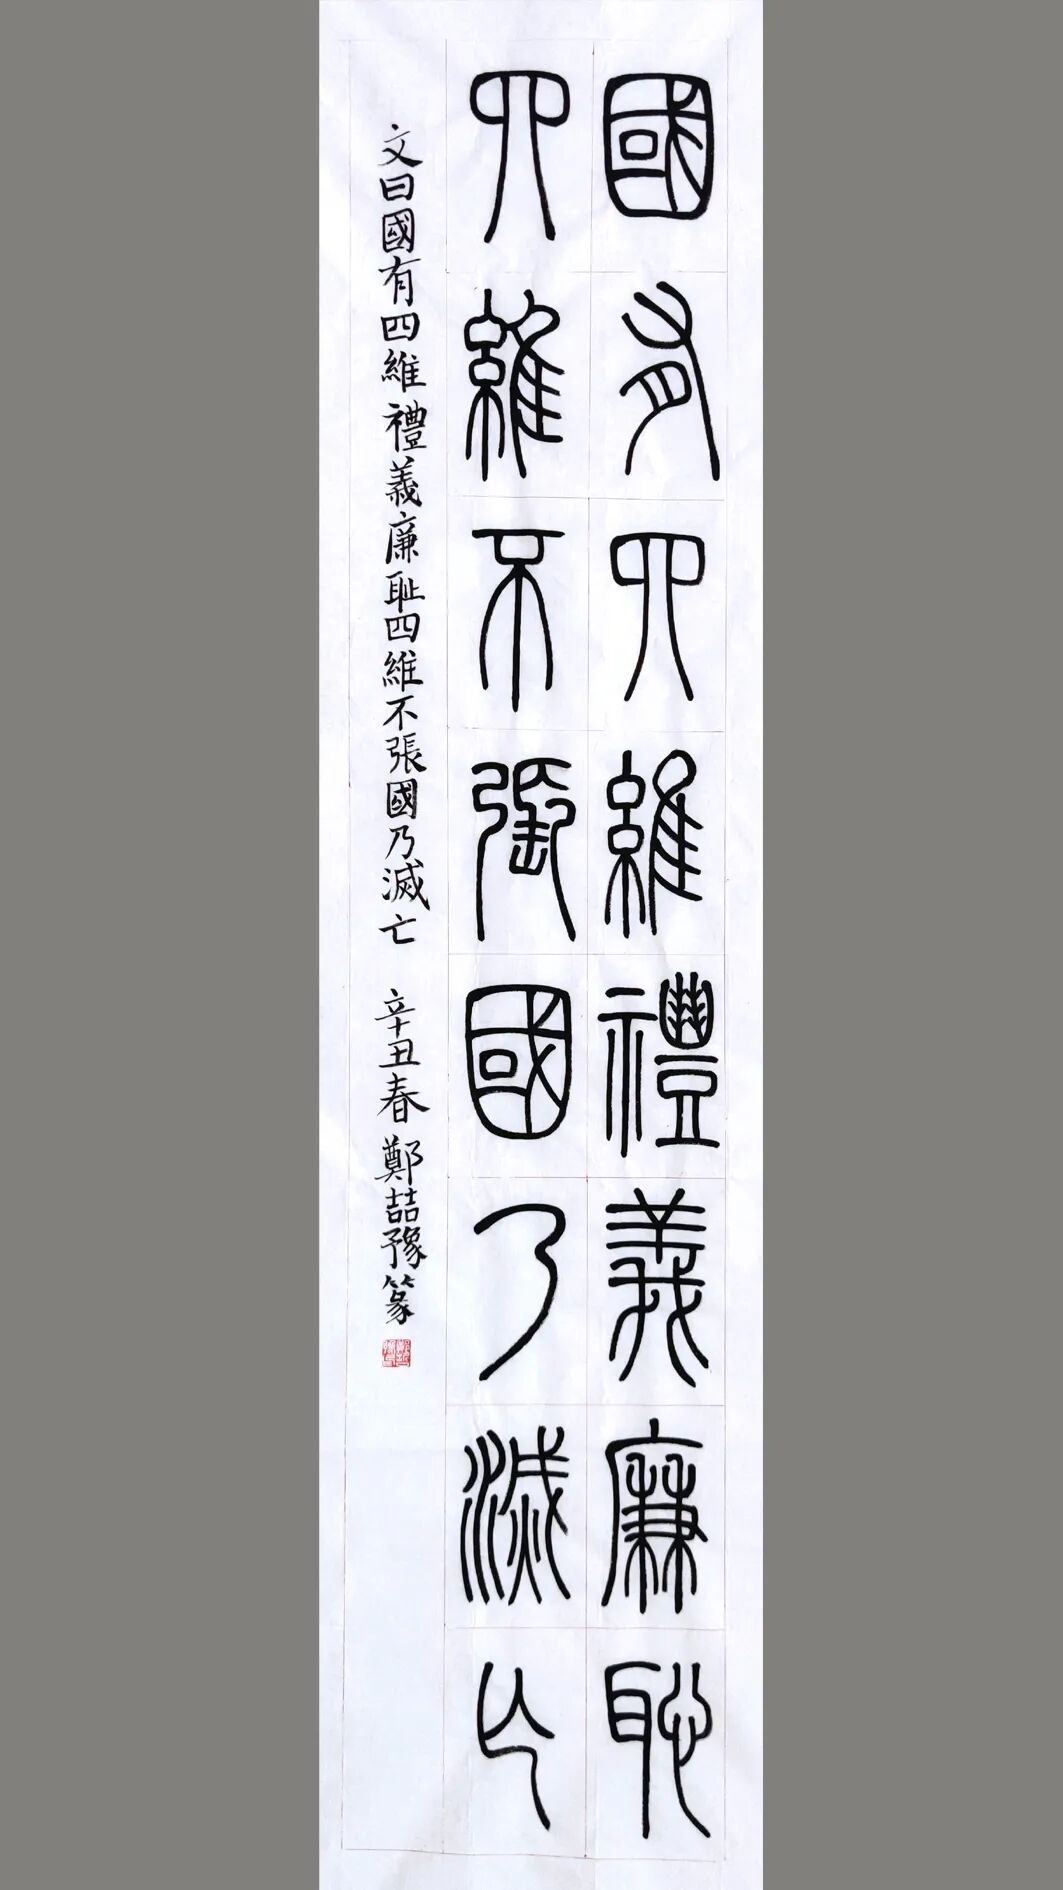 國有四維禮義廉恥
四維不張國乃滅亡
文曰國有四維禮義廉耻四維不張國乃滅亡 辛丑春 鄭喆豫篆